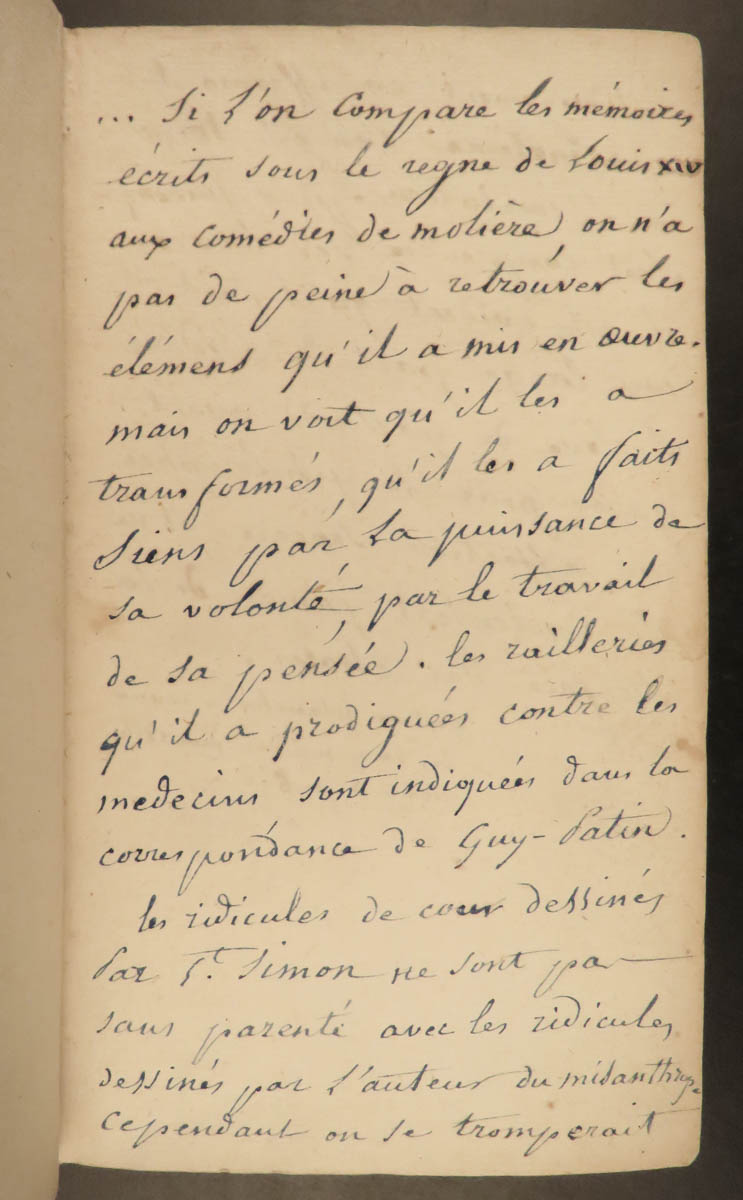 ... Si l'on compare les mémoires
écrits sous le regne de Louis XIV
aux comédies de molière, on n'a
pas de peine à retrouver les
élémens qu'il a mis en œuvre.
mais on voit qu'il les a
transformés, qu'il les a faits
siens par la puissance de
sa volonté, par le travail
de sa pensée. les railleries
qu'il a prodiguées contre les
medecins sont indiquées dans la
correspondance de Guy-Patin.
les ridicules de cour dessinés
Par St. Simon ne sont pas
sans parenté avec les ridicules
dessinés par l'auteur du misanthrope
cependant on se tromperait